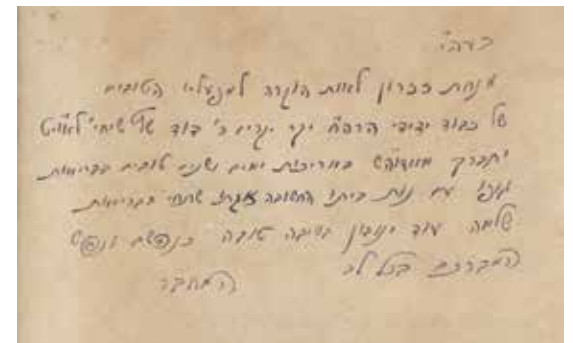 בעה״י
מנחת זכרון לאות הוקרה למפעליו הטובים
של כבוד ידידי הרה״ח יקר ר׳ דוד שיחי׳
יתברך באריכות ימים ושנים טובים בבריאות
עם נות ביתו החשובה שתחי׳ בבריאות
שלמה עוד ינובון בשיבה טובה כנפשם ונפש
המברכם בכל לב
המחבר